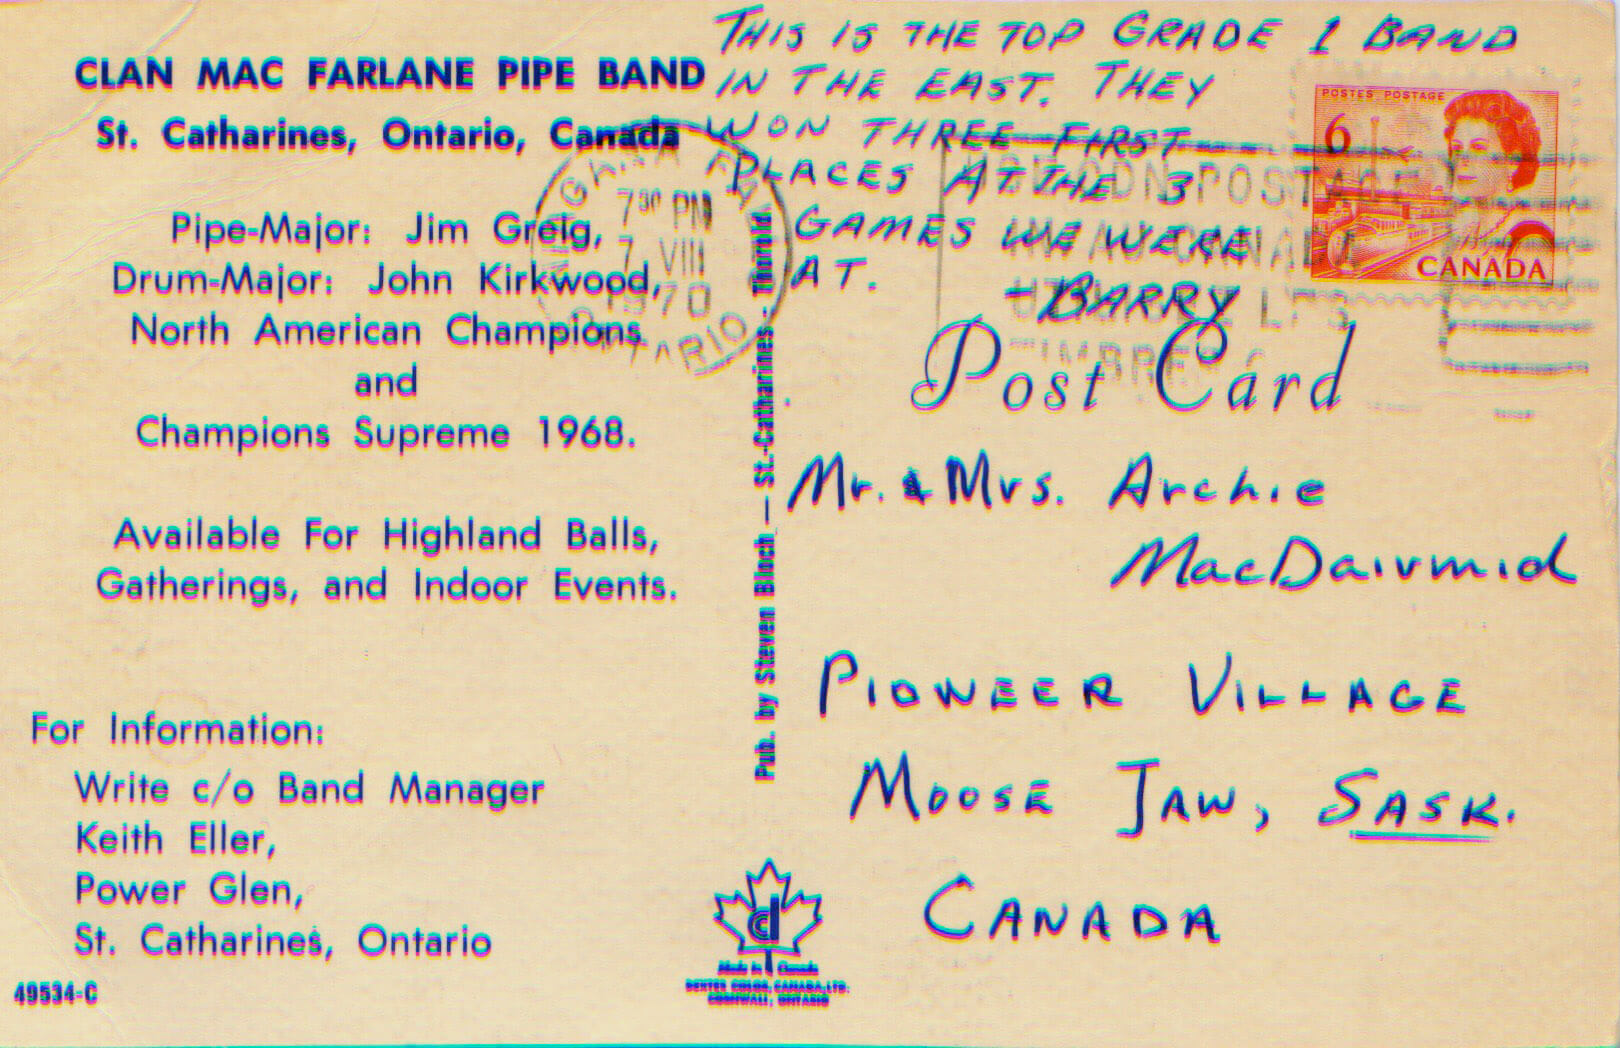 CLAN MAC FARLANE PIPE BAND
St. Catharines, Ontario, Canada
Pipe-Major: Jim Greig,
Drum-Major: John Kirkwood,
North American Champions
and
Champions Supreme 1968.
Available For Highland Balls,
Gatherings, and Indoor Events.
For Information:
Write c/o Band Manager
Keith Eller,
Power Glen,
St. Catharines, Ontario
49534-C
730 PM
7 VIII
1970
ONTARIO
Pub. by Steven Bloch — St. Catharines - Thorold
Made in Canada
DEXTER COLOR CANADA, LTD.
CORNWALL, ONTARIO
THIS IS THE TOP GRADE 1 BAND
IN THE EAST. THEY
WON THREE FIRST
PLACES AT THE 3
GAMES WE WERE
AT.
-BARRY
POSTES POSTAGE
6
CANADA
Post Card
Mr. & Mrs. Archie
MacDairmid
PIONEER VILLAGE
MOOSE JAW, SASK.
CANADA